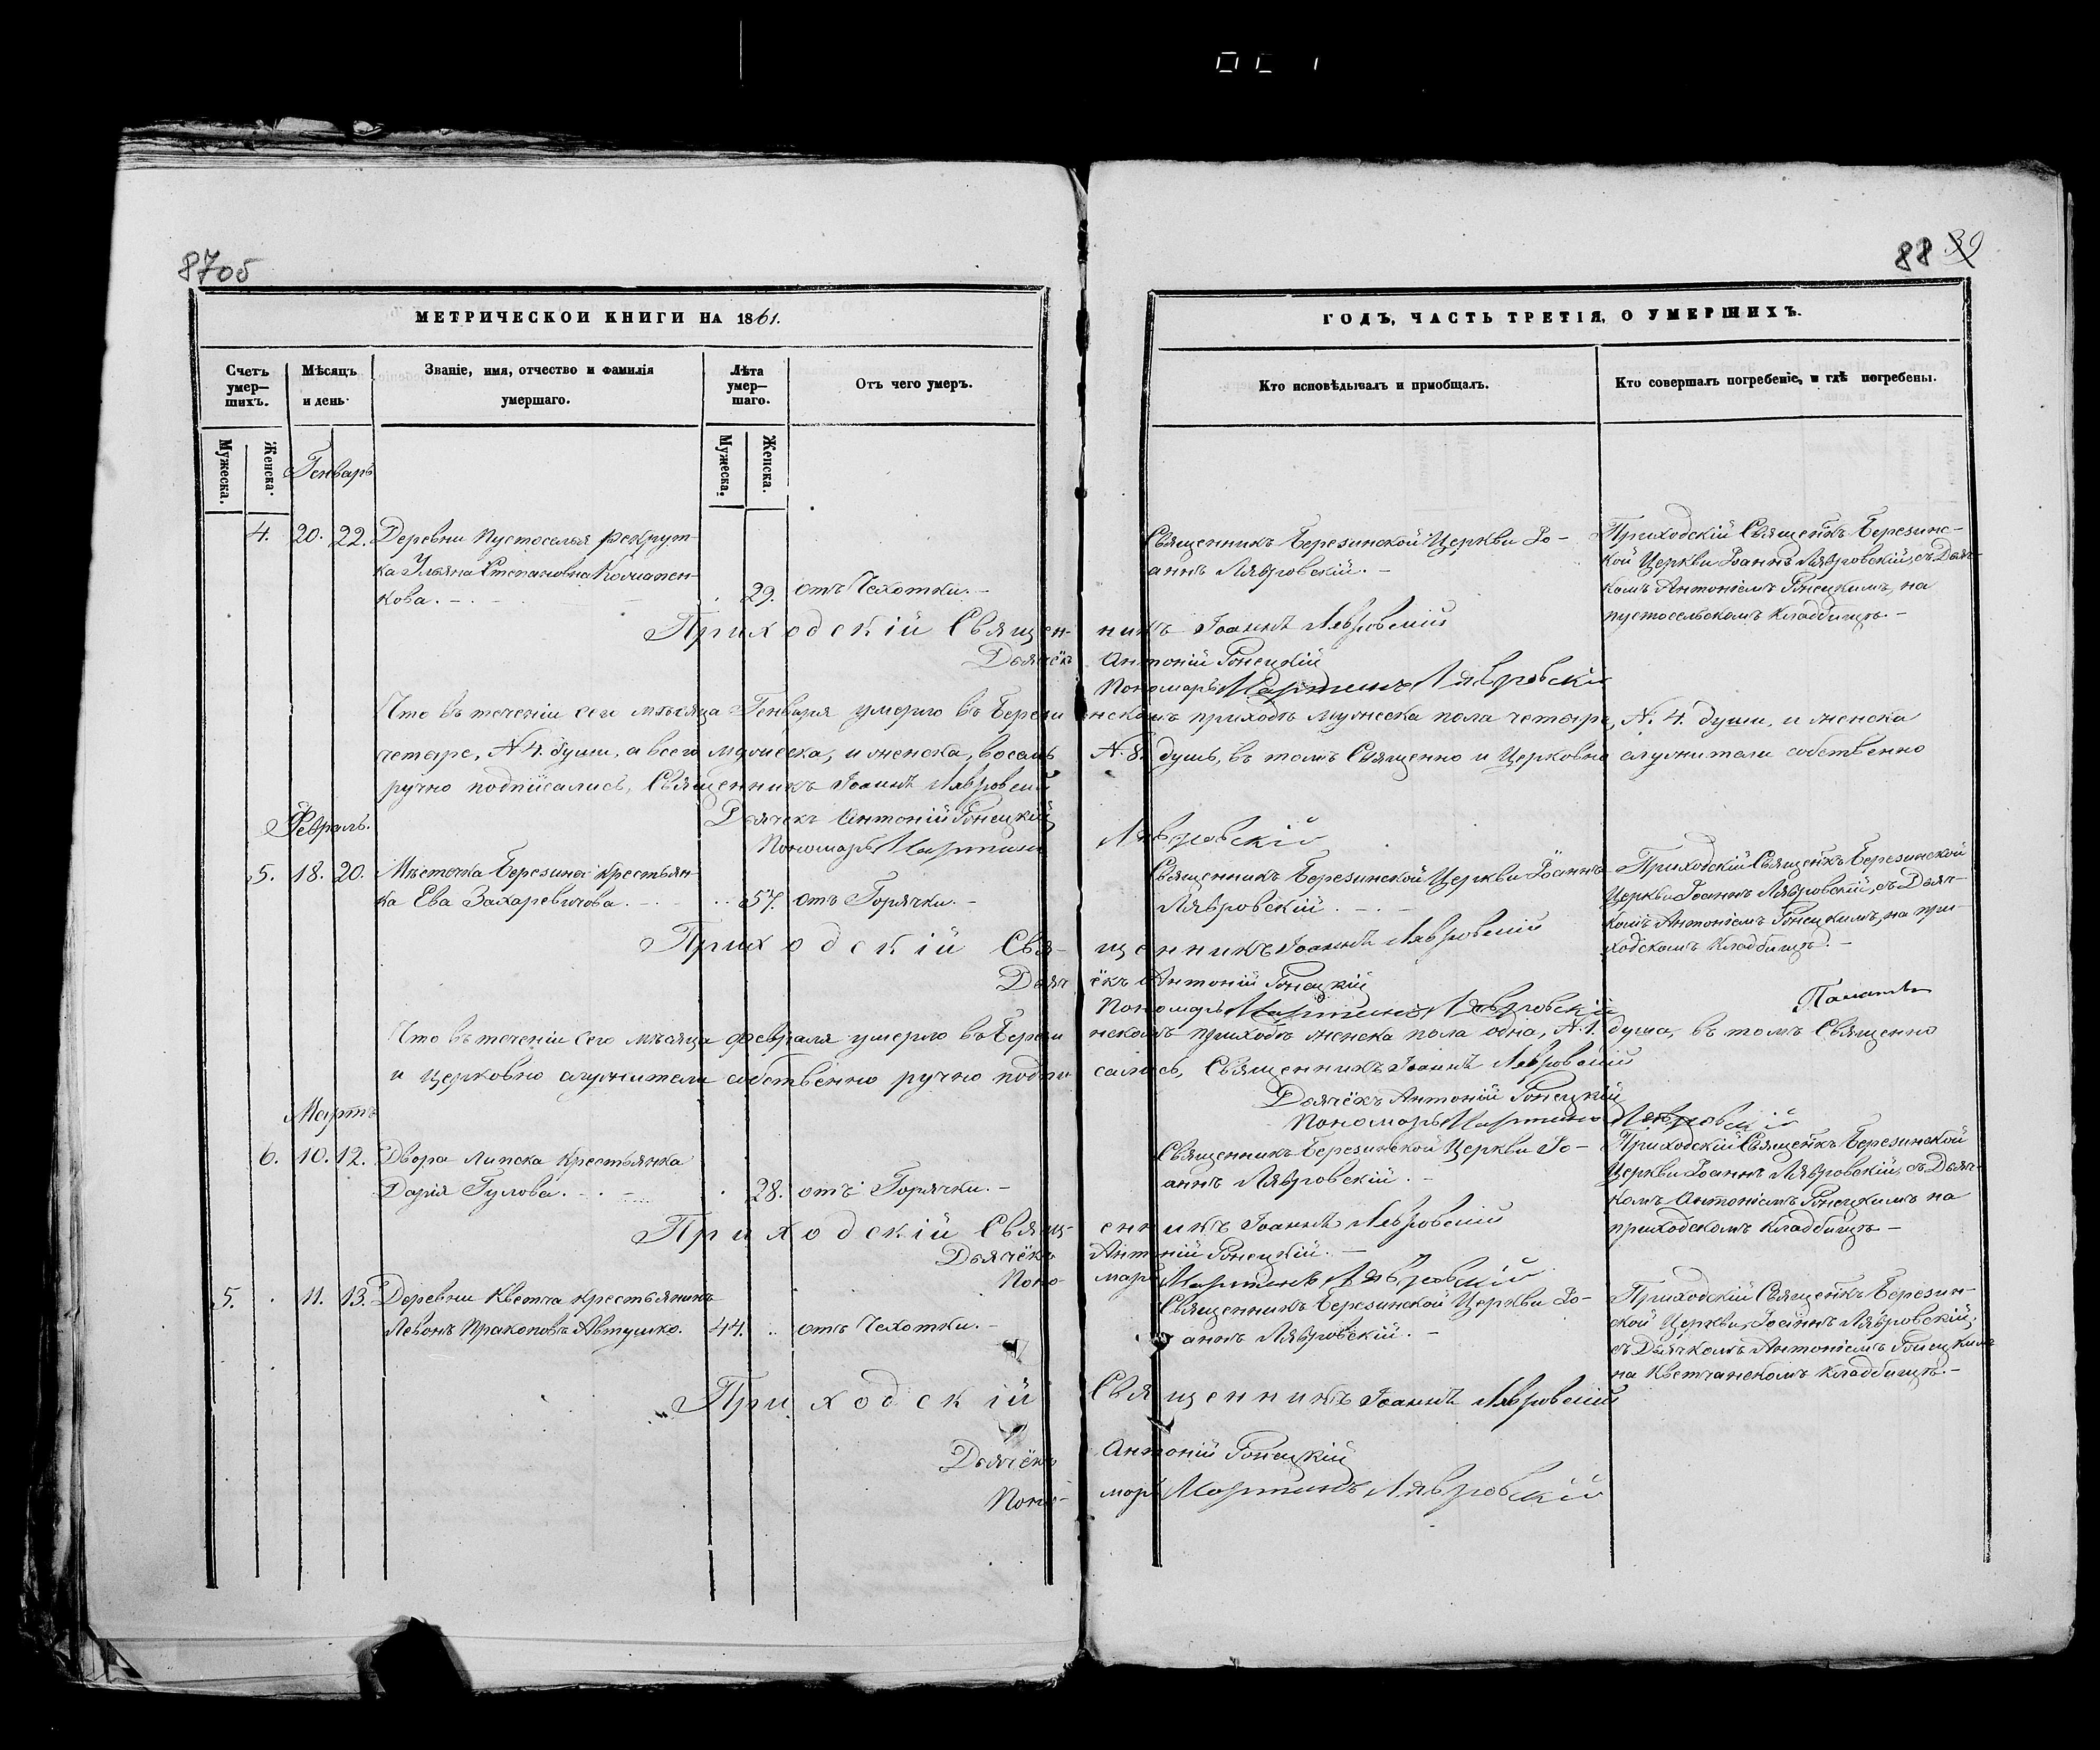 87об
88 39
МЕТРИЧЕСКОЙ КНИГИ НА 1861.
ГОДЪ, ЧАСТЬ ТРЕТІЯ, О УМЕРШИХЪ.
Счетъ умер—шихъ.
Мѣсяцъ и день.
Званіе, имя, отчество и фамилія умершаго.
Лѣта умер—шаго.
Отъ чего умеръ.
Кто исповѣдывалъ и приобщалъ.
Кто совершалъ погребеніе, и гдѣ погребены.
Мужеска.
Женска.
Мужеска.
Женска.
Генварь
4. 20. 22. Деревни Пустоселья рекрут-
ка Ульяна Степановна
кова. 29. отъ Чехотки.
Священникъ Березинской Церкви Іо-
аннъ Лявровскій.
Приходскій Священкъ Березинс-
кой Церкви Іоаннъ Лявровскій, съ Дьяч-
комъ Антоніемъ Гонецкимъ, на
пустосельскомъ кладбищѣ.
Приходскій Священ- никъ Іоаннъ Лявровскій
Дьячёкъ Антоній Гонецкій
Пономарь Мартинъ Лявровскій
Что въ теченіи сего мѣсяца Генваря умерло въ Берези нскомъ приходѣ мужеска пола четыре, №. 4. души, и женска
четыре, № 4. души, а всего мужеска, и женска, восемь №. 8. душъ, въ томъ Священно и Церковно служители собственно
ручно подписались, Священникъ Іоаннъ Лявровскій
Дьячекъ Антоній Гонецкій
Пономарь Мартинъ Лявровскій
Февраль.
5. 18. 20. Мѣстечка Березина крестьян-
ка Ева Захаревичова. 57. отъ Горячки.
Священникъ Березинской Церкви Іоаннъ
Лявровскій.
Приходскій Священкъ Березинской
Церкви Іоаннъ Лявровскій, съ Дьяч-
комъ Антоніемъ Гонецкимъ, на при-
ходскомъ кладбищѣ.
Приходскій Свя- щенникъ Іоаннъ Лявровскій
Дьяч ёкъ Антоній Гонецкій
Пономарь Мартинъ Лявровскій
Что въ теченіи сего мѣсяца февраля умерло въ Берези нскомъ приходѣ женска пола одна, №. 1. душа, въ томъ Священно
и Церковно служители собственно ручно подпи сались, Священникъ Іоаннъ Лявровскій
Дьячёкъ Антоній Гонецкій
Пономарь Мартинъ Лявровскій
Мартъ
6. 10. 12. Двора Липска крестьянка
Дарія Гулова. 28. отъ Горячки.
Священникъ Березинской Церкви Іо-
аннъ Лявровскій.
Приходскій Священкъ Березинской
Церкви Іоаннъ Лявровскій, съ Дьяч-
комъ Антоніемъ Гонецкимъ на
приходскомъ кладбищѣ
Приходскій Свящ- енникъ Іоаннъ Лявровскій
Дьячёкъ Антоній Гонецкій.
Поно- марь Мартинъ Лявровскій
5. 11. 13. Деревни Кветча крестьянинъ
Левонъ Пракоповъ Автушко. 44. отъ Чехотки.
Священникъ Березинской Церкви Іо-
аннъ Лявровскій.
Приходскій Священкъ Березин-
ской Церкви, Іоаннъ Лявровскій,
съ Дьячкомъ Антоніемъ Гонецкимъ
на Кветчанскомъ кладбищѣ.
Приходскій Священникъ Іоаннъ Лявровскій
Дьячёкъ Антоній Гонецкій
Поно- марь Мартинъ Лявровскій